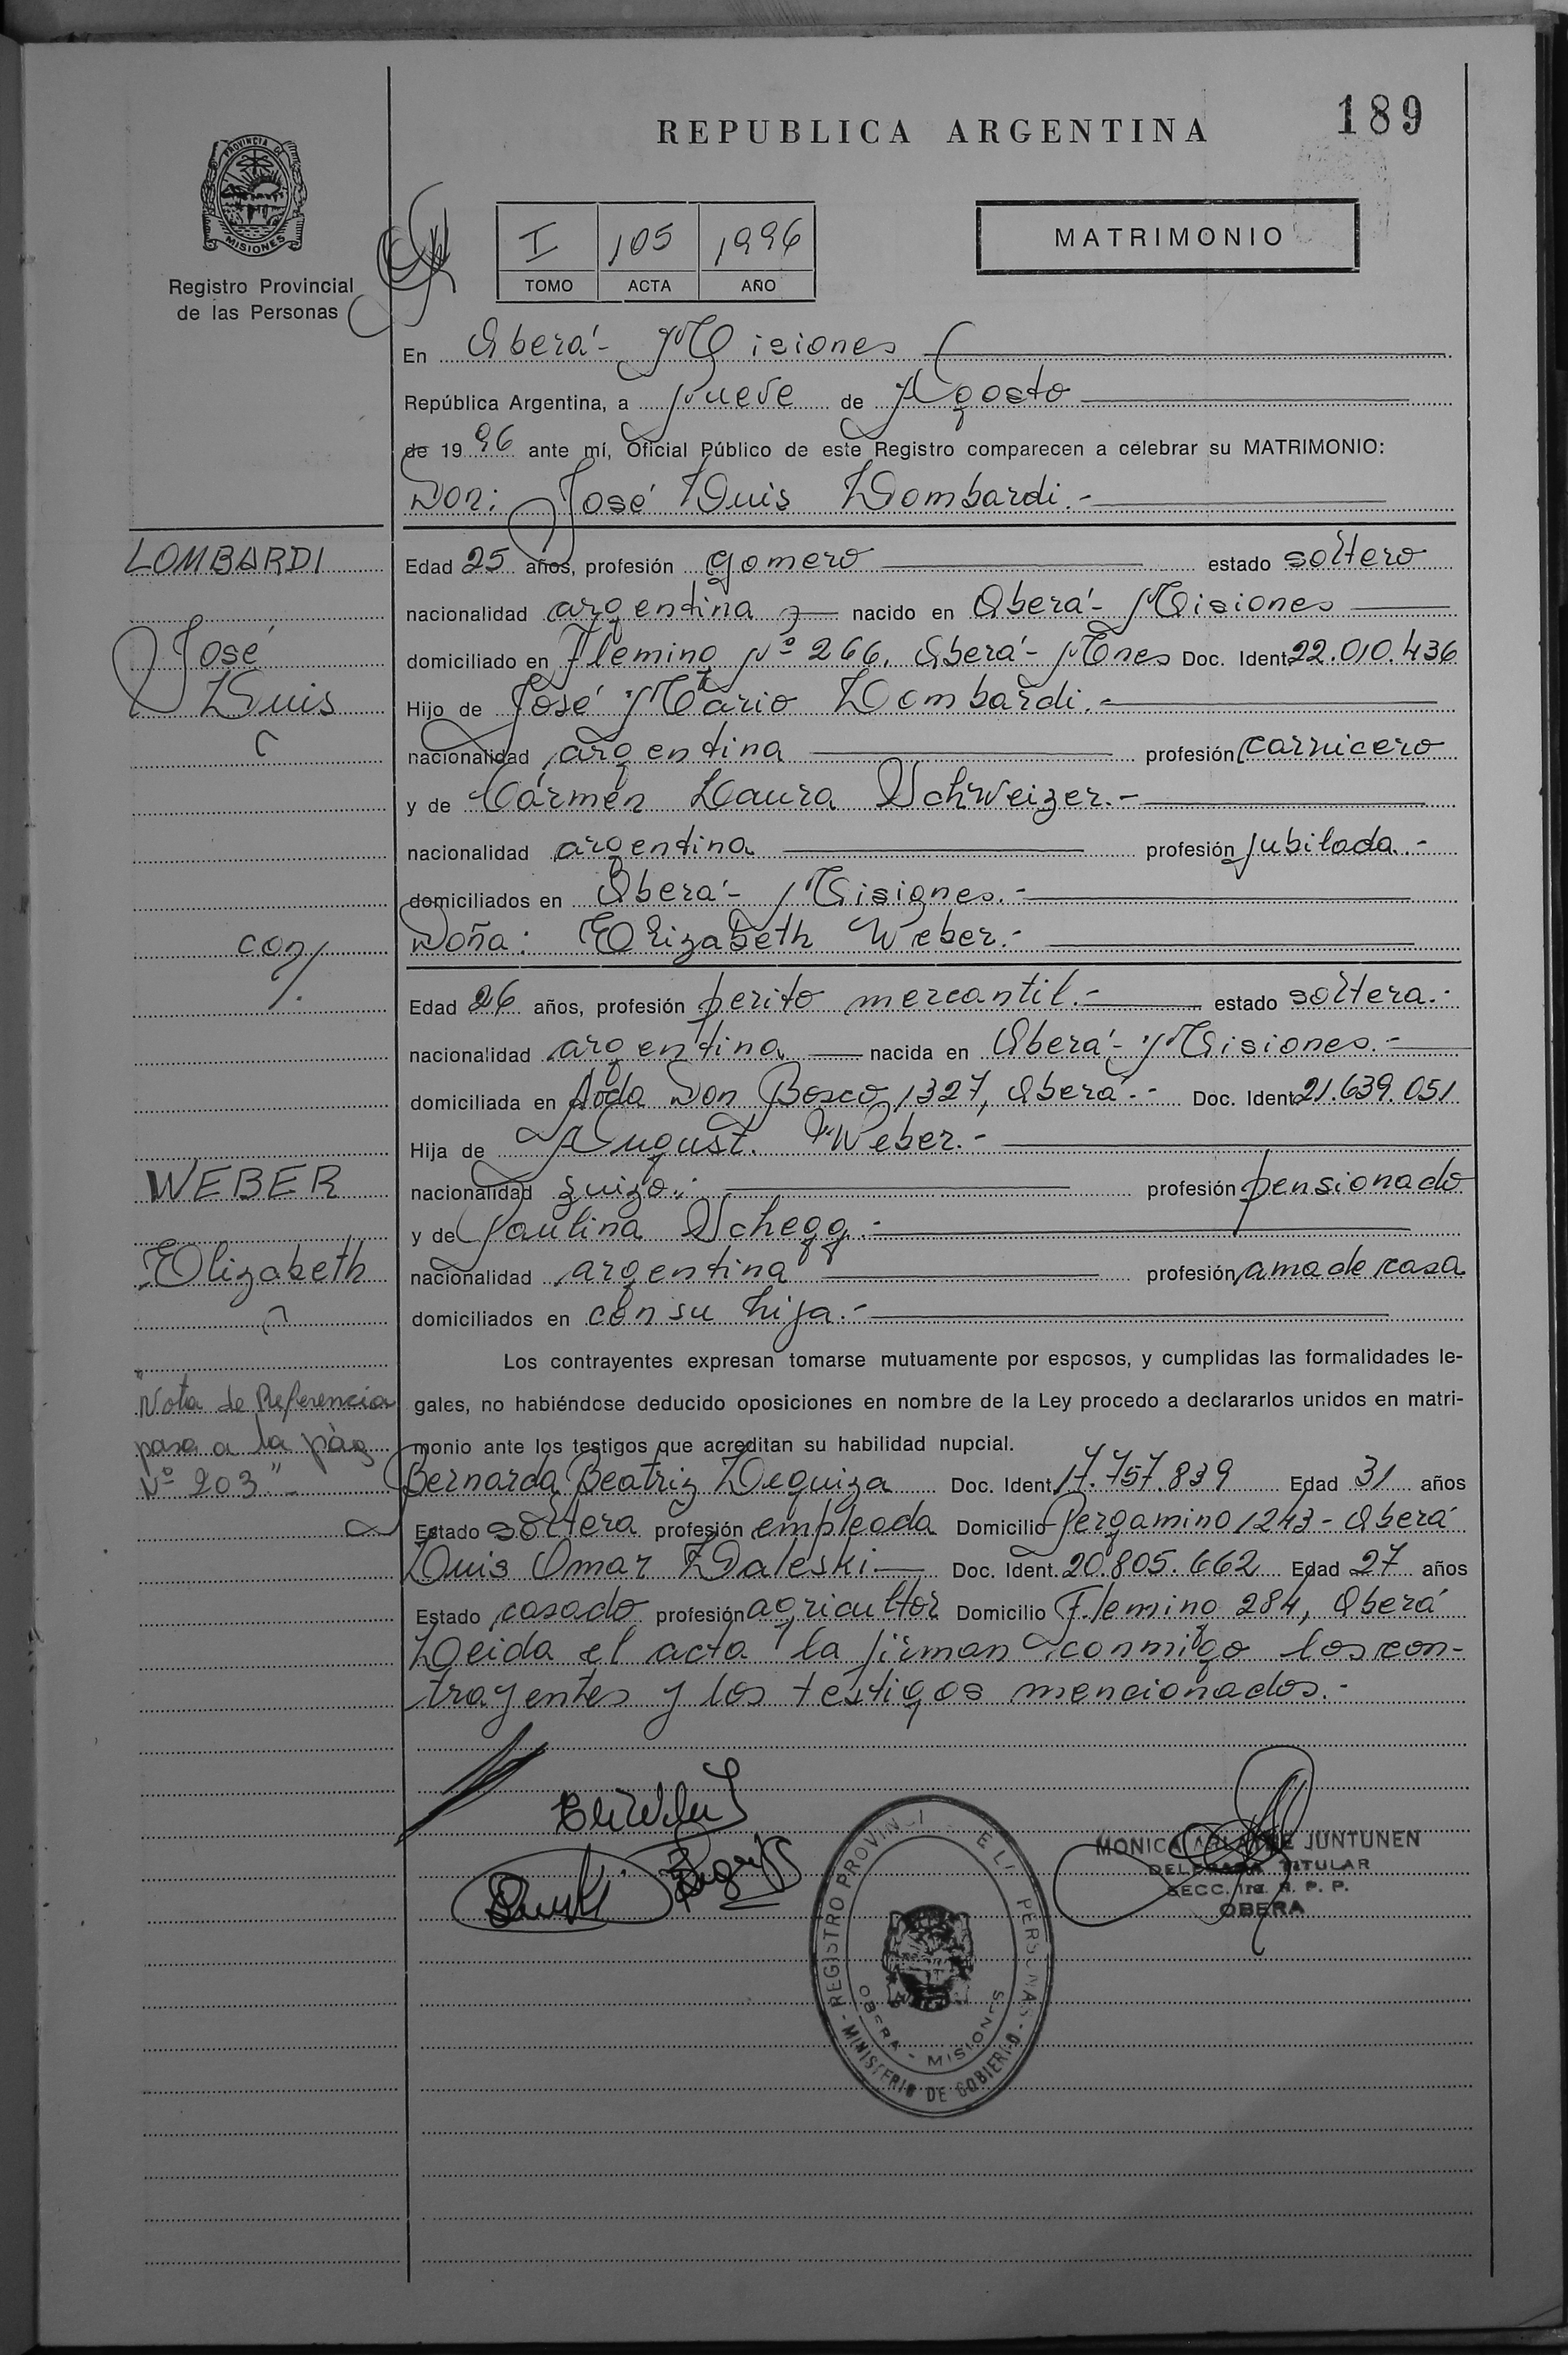 189
REPUBLICA ARGENTINA
PROVINCIA DE
MISIONES
Registro Provincial
de las Personas
I 105 1996
TOMO ACTA AÑO
MATRIMONIO
En Oberá - Misiones
República Argentina, a Nueve de Agosto
de 1996 ante mí, Oficial Público de este Registro comparecen a celebrar su MATRIMONIO:
Don: José Luis Lombardi.-
LOMBARDI
José
Luis
Edad 25 años, profesión gomero estado soltero
nacionalidad argentina nacido en Oberá - Misiones
domiciliado en Fleming Nº 266, Oberá - Mnes Doc. Ident. 22.010.436
Hijo de José Mario Lombardi.-
nacionalidad argentina profesión carnicero
y de Cármen Laura Schweizer.-
nacionalidad argentina profesión jubilada.-
domiciliados en Oberá - Misiones.-
con/.
Doña: Elizabeth Weber.-
Edad 26 años, profesión perito mercantil.- estado soltera.-
nacionalidad argentina nacida en Oberá - Misiones.-
domiciliada en Avda Don Bosco 1327, Oberá.- Doc. Ident. 21.639.051
Hija de August Weber.-
WEBER
Elizabeth
nacionalidad suizo.- profesión pensionado
y de Paulina Schegg.-
nacionalidad argentina profesión ama de casa
domiciliados en con su hija.-
Los contrayentes expresan tomarse mutuamente por esposos, y cumplidas las formalidades le-
gales, no habiéndose deducido oposiciones en nombre de la Ley procedo a declararlos unidos en matri-
monio ante los testigos que acreditan su habilidad nupcial.
"Nota de Referencia
pasa a la pág
Nº 203"-
Bernarda Beatriz Leguiza Doc. Ident. 17.757.839 Edad 31 años
Estado soltera profesión empleada Domicilio Pergamino 1243 - Oberá
Luis Omar Zaleski Doc. Ident. 20.805.662 Edad 27 años
Estado casado profesión agricultor Domicilio Fleming 284, Oberá
Leida el acta la firman conmigo los con-
trayentes y los testigos mencionados.-
MONICA JUNTUNEN
DELEGADA TITULAR
SECC. 1ra. R. P. P.
OBERA
REGISTRO PROVINCI PERSONAS
OBERA - MISIONES
- MINISTERIO DE GOBIERNO -